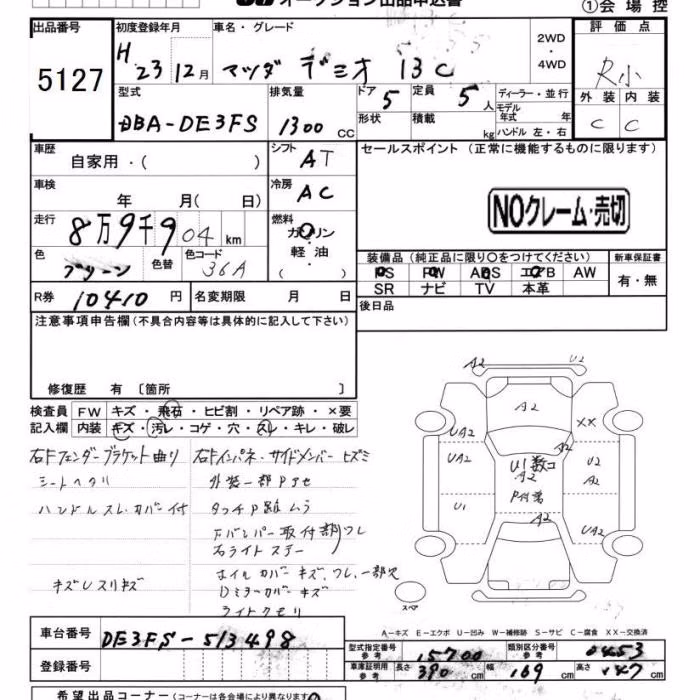 オークション出品申込書
①会場控
出品番号
5127
初度登録年月
H 23 12月
車名・グレード
マツダ デミオ 13C
2WD
4WD
評価点
R小
外装 内装
C C
型式
DBA-DE3FS
排気量
1300 CC
ドア 5
形状
定員 5人
積載 kg
ディーラー・並行
モデル年式 年
ハンドル 左・右
車歴
自家用・( )
シフト AT
セールスポイント (正常に機能するものに限ります)
NOクレーム・売切
車検
年 月( 日)
冷房 AC
走行
8万9千904 km
燃料
ガソリン
軽油
( )
色
グリーン
色替
色コード
36A
装備品 (純正品に限り○をつけてください)
PS PW ABS エアB AW
SR ナビ TV 本革
新車保証書
有・無
R券 10410円
名変期限 月 日
後日品
注意事項申告欄 (不具合内容等は具体的に記入して下さい)
修復歴 有 〔箇所 〕
検査員 FW キズ・飛石・ヒビ割・リペア跡・×要
記入欄 内装 キズ・汚レ・コゲ・穴・スレ・キレ・破レ
右Fフェンダーブラケット曲り
シートヘタリ
ハンドルスレ・カバー付
キズUスリキズ
右Fインパネ・サイドメンバーヒズミ
外装一部Pヌセ
タッチP跡ムラ
Fバンパー取付部ワレ
右ライトステー
ホイルカバーキズ、ワレ、一部欠
Dミラーカバーキズ
ライトクモリ
A2 U2
A2
XX
UA2 A2
UA2 U1数コ U2
A2 A2
U1 P付着
A2 UA2
スペア
A-キズ E-エクボ U-凹み W-補修跡 S-サビ C-腐食 XX-交換済
車台番号 DE3FS-513498
登録番号
型式指定番号 参考 15700
類別区分番号 参考 0453
車庫証明用 参考 長さ 390 cm 幅 169 cm 高さ 147 cm
希望出品コーナー (コーナーは各会場により異なります)